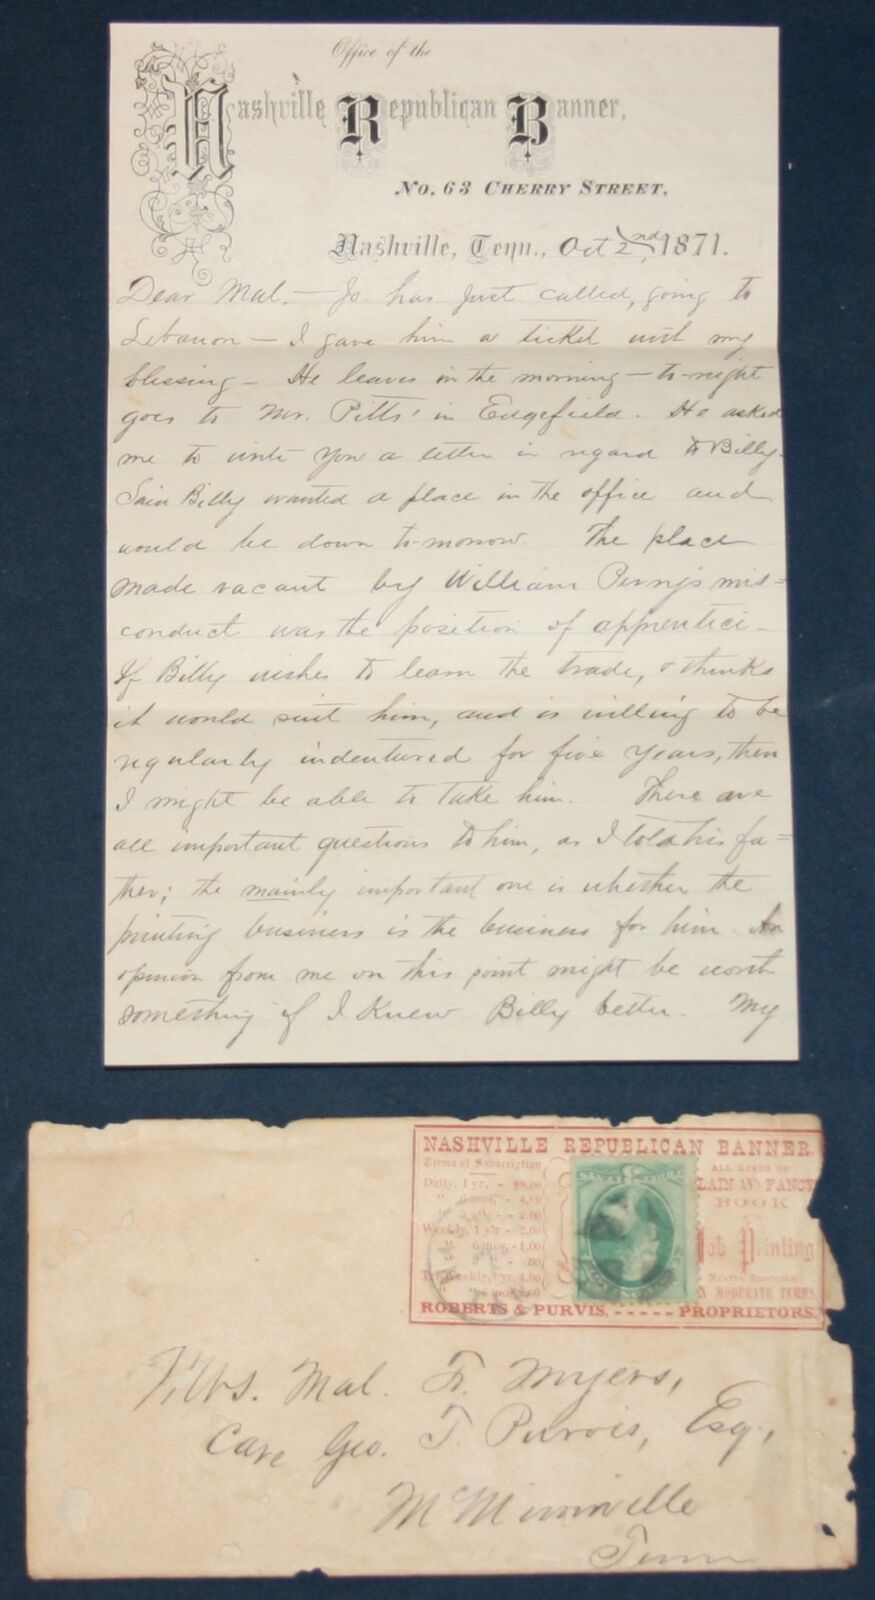 Office of the
Nashville Republican Banner,
No. 63 Cherry Street.
Nashville, Tenn., Oct 2nd, 1871.
Dear Mal, — Jo. has just called, going to
Lebanon — I gave him a ticket with my
blessing — He leaves in the morning — to-night
goes to Mr. Pitts' in Edgefield. He asked
me to write you a letter in regard to Billy.
Said Billy wanted a place in the office and
would be down to-morrow. The place
made vacant by William Perry's mis=
conduct was the position of apprentice —
If Billy wishes to learn the trade, & thinks
it would suit him, and is willing to be
regularly indentured for five years, then
I might be able to take him. These are
all important questions to him, as I told his fa=
ther; the mainly important one is whether the
printing business is the business for him. An
opinion from me on this point might be worth
something if I knew Billy better. My
NASHVILLE REPUBLICAN BANNER.
Terms of Subscription
Daily, 1 yr. - $8.00
" 6 mos. - 4.00
" 3 - 2.00
Weekly, 1 yr - 2.00
" 6 mos, - 1.00
" 3
Tri-Weekly, 1 yr, 4.00
ALL KINDS OF
PLAIN AND FANCY
BOOK
Job Printing
ON MODERATE TERMS
ROBERTS & PURVIS, - - - - - PROPRIETORS.
Mrs. Mal. F. Myers,
Care Geo. T. Purvis, Esq.,
McMinnville
Tenn